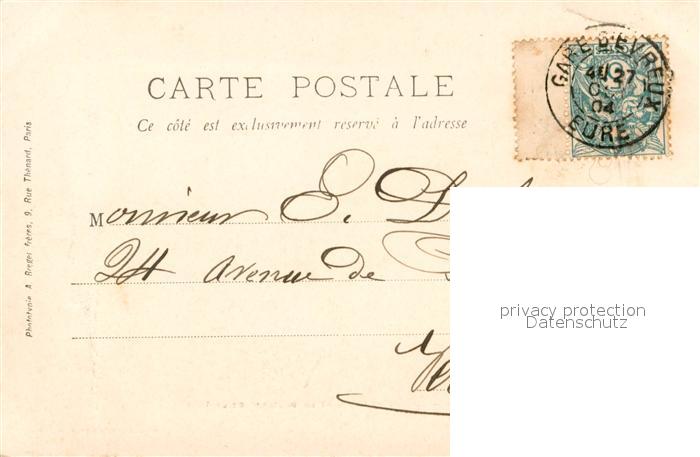 CARTE POSTALE
Ce côté est exclusivement reservé à l'adresse
GARE D'EVREUX
27
04
EURE
Monsieur E.
24 avenue de
Phototypie A. Breger frères, 9, Rue Thénard, Paris
privacy protection
Datenschutz